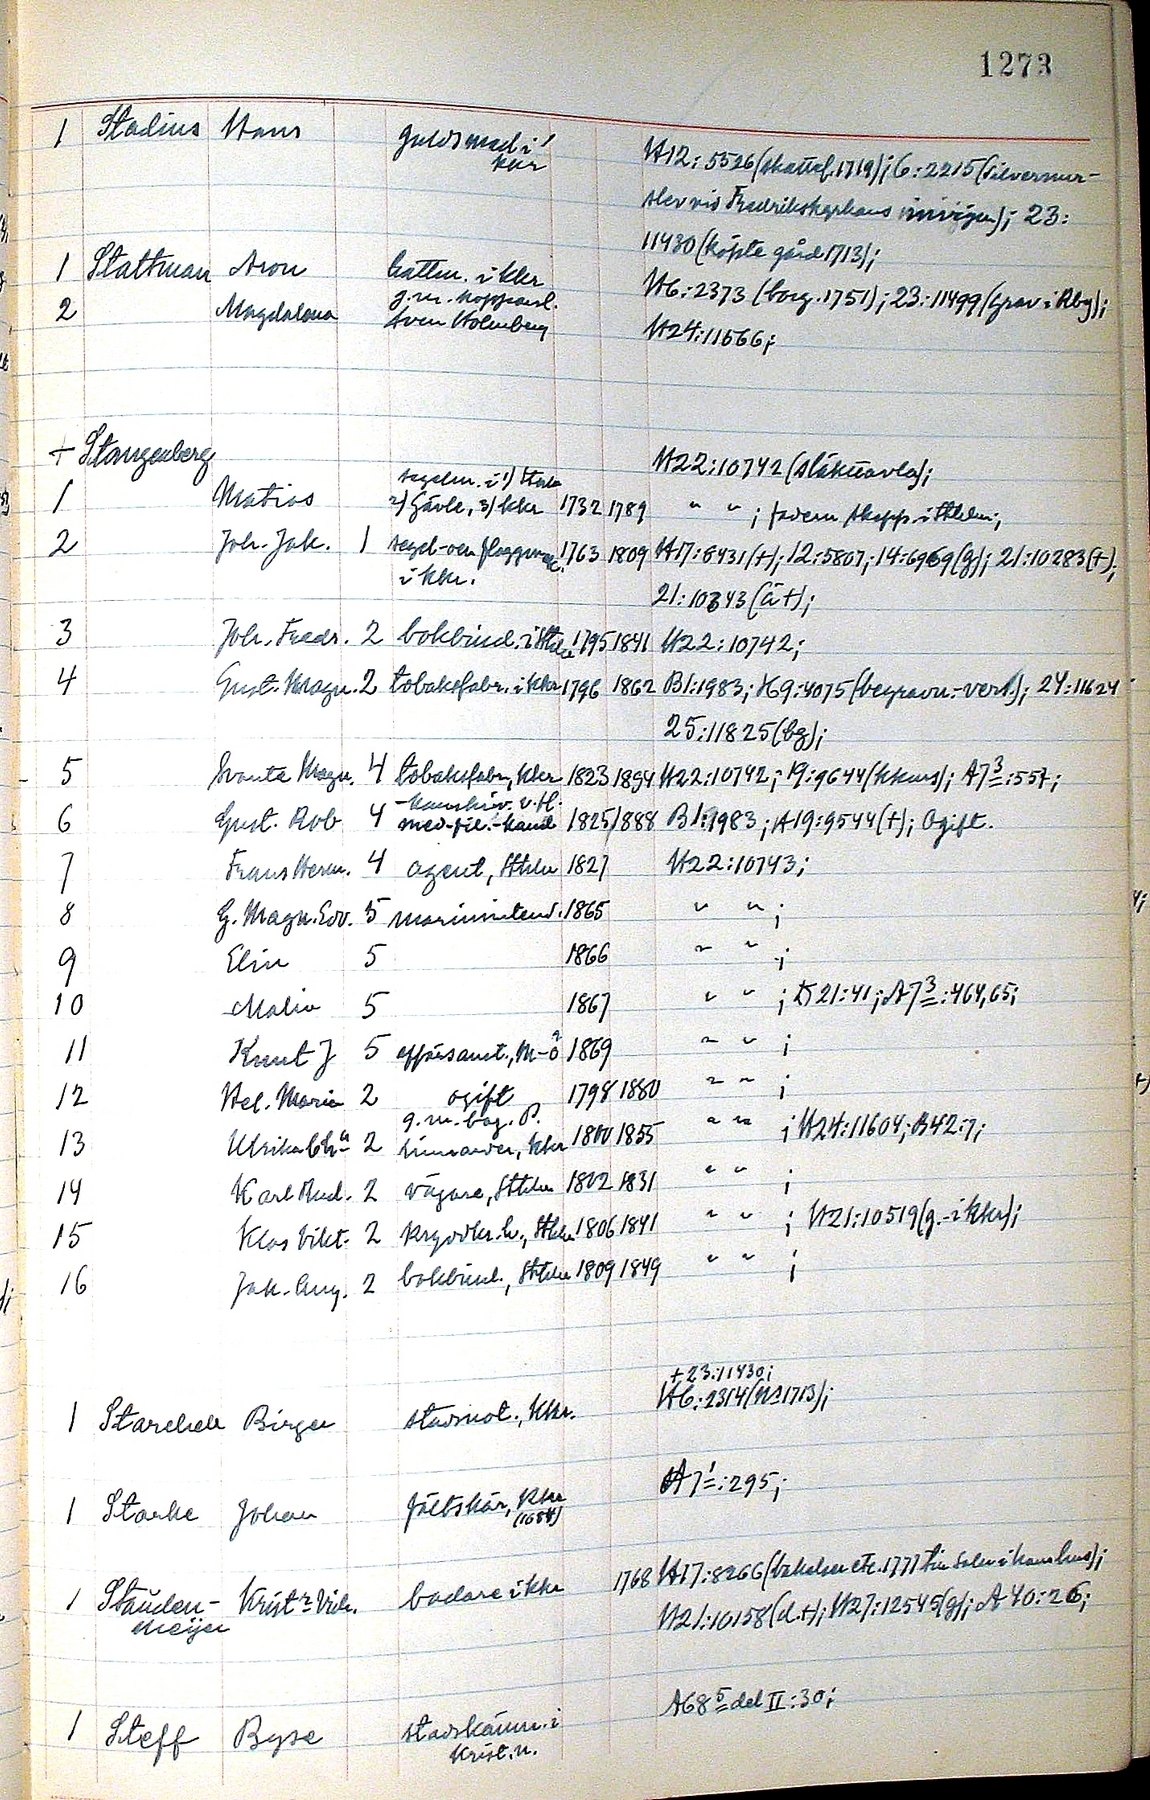 1273
1 Stadius Hans guldsmed i kkr H12:5526 (skattef. 1719); 6:2215 (Silversmr-
sler vid Fredrikskyrkans invign); 23:
11430 (köpte gård 1713);
1 Stattman Aron hattm. i kkr H6:2373 (borg. 1751); 23:11499 (grav i Rby);
2 Magdalena g.m. kopparsl. Sven Holmberg H24:11566;
+ Stangenberg H22:10742 (släkttavla);
1 Matias segelm. i 1) Sthlm 2) Gävle, 3) kkr 1732 1789 " " ; fadern skepp. i Sthlm;
2 Joh. Jak. 1 segel- och flaggmak. i kkr. 1763 1809 H17:8431 (+); 12:5807; 14:6969 (g); 21:10283 (+);
21:10343 (ä+);
3 Joh. Fredr. 2 bokbind. i Sthlm 1795 1841 H22:10742;
4 Gust. Magn. 2 tobaksfabr. i kkr 1796 1862 B1:1983; H9:4075 (begravn.-verf.); 24:11624
25:11825 (bg);
5 Svante Magn. 4 tobaksfabr., kkr 1823 1894 H22:10742; 19:9644 (kkurs); A7 3:557;
6 Gust. Rob 4 kamskriv. v. fl. med.-fil.-kand 1825 1888 B1:1983; H19:9544 (+); Ogift.
7 Frans Herm. 4 agent, Sthlm 1827 H22:10743;
8 G. Magn. Edv. 5 marinintend. 1865 " " ;
9 Elin 5 1866 " " ;
10 Malin 5 1867 " " ; D21:41; A7 3:464,65;
11 Knut J 5 affärsamt., M-ö 1869 " " ;
12 Hel. Maria 2 ogift 1798 1880 " " ;
13 Ulrika Ch:a 2 g.m. bag. P. kkr 1800 1855 " " ; H24:11604; B42:7;
14 Karl Rud. 2 vägare, Sthlm 1802 1831 " " ;
15 Klas Vikt. 2 kryddkr.h., Sthlm 1806 1841 " " ; H21:10519 (g. i kkr);
16 Jak. Aug. 2 bokbind., Sthlm 1809 1849 " " ;
+23:11430;
1 Starcheh Birger stadsnot., kkr. H6:2314 (No 1713);
1 Starke Johan fältskär, kkr (1684) A7 1:295;
1 Stauden-
meijer Krist:n Vilh. badare i kkr 1768 H17:8266 (bakelser etc. 1777 till salu i hans hus);
H21:10158 (d.+); H27:12545 (g); A40:26;
1 Steff Byse stadskämn. i Krist.n. A68 5 del II:30;